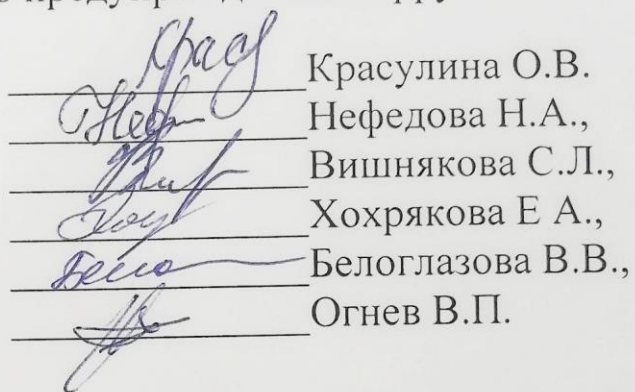 Красулина О.В.
Нефедова Н.А.,
Вишнякова С.Л.,
Хохрякова Е А.,
Белоглазова В.В.,
Огнев В.П.